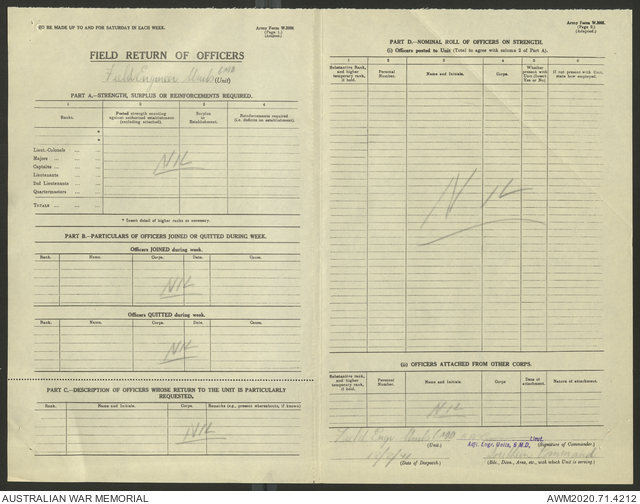 TO BE MADE UP TO AND FOR SATURDAY IN EACH WEEK.
Army Form W.3008.
(Page 1.)
(Adapted.)
FIELD RETURN OF OFFICERS
Field Engineer (Unit)
PART A.—STRENGTH, SURPLUS OR REINFORCEMENTS REQUIRED.
1 2 3 4
Ranks. Posted strength counting against authorised establishment (excluding attached). Surplus to Establishment. Reinforcements required (i.e. deficits on establishment).
*
*
Lieut.-Colonels ... ...
Majors ... ...
Captains ... ...
Lieutenants
2nd Lieutenants ... ...
Quartermasters ... ...
TOTALS ... ...
NIL
* Insert detail of higher ranks as necessary.
PART B.—PARTICULARS OF OFFICERS JOINED OR QUITTED DURING WEEK.
Officers JOINED during week.
Rank. Name. Corps. Date. Cause.
NIL
Officers QUITTED during week.
Rank. Name. Corps. Date. Cause.
NIL
PART C.—DESCRIPTION OF OFFICERS WHOSE RETURN TO THE UNIT IS PARTICULARLY REQUESTED.
Rank. Name and Initials. Corps. Remarks (e.g., present whereabouts, if known)
NIL
Army Form W.3008.
(Page 2.)
(Adapted.)
PART D.—NOMINAL ROLL OF OFFICERS ON STRENGTH.
(i) Officers posted to Unit (Total to agree with column 2 of Part A).
1 2 3 4 5 6
Substantive Rank, and higher temporary rank, if held. Personal Number. Name and Initials. Corps. Whether present with Unit (Insert Yes or No). If not present with Unit, state how employed.
NIL
(ii) OFFICERS ATTACHED FROM OTHER CORPS.
Substantive rank, and higher temporary rank, if held. Personal Number. Name and Initials. Corps. Date of attachment. Nature of attachment.
NIL
Field Engr
Lieut.
(Unit.) Adjt. Engr. Units, 6 M.D. (Signature of Commander.)
Southern Command
(Date of Despatch) (Bde., Divn., Area, etc., with which Unit is serving)
AUSTRALIAN WAR MEMORIAL
AWM2020.71.4212